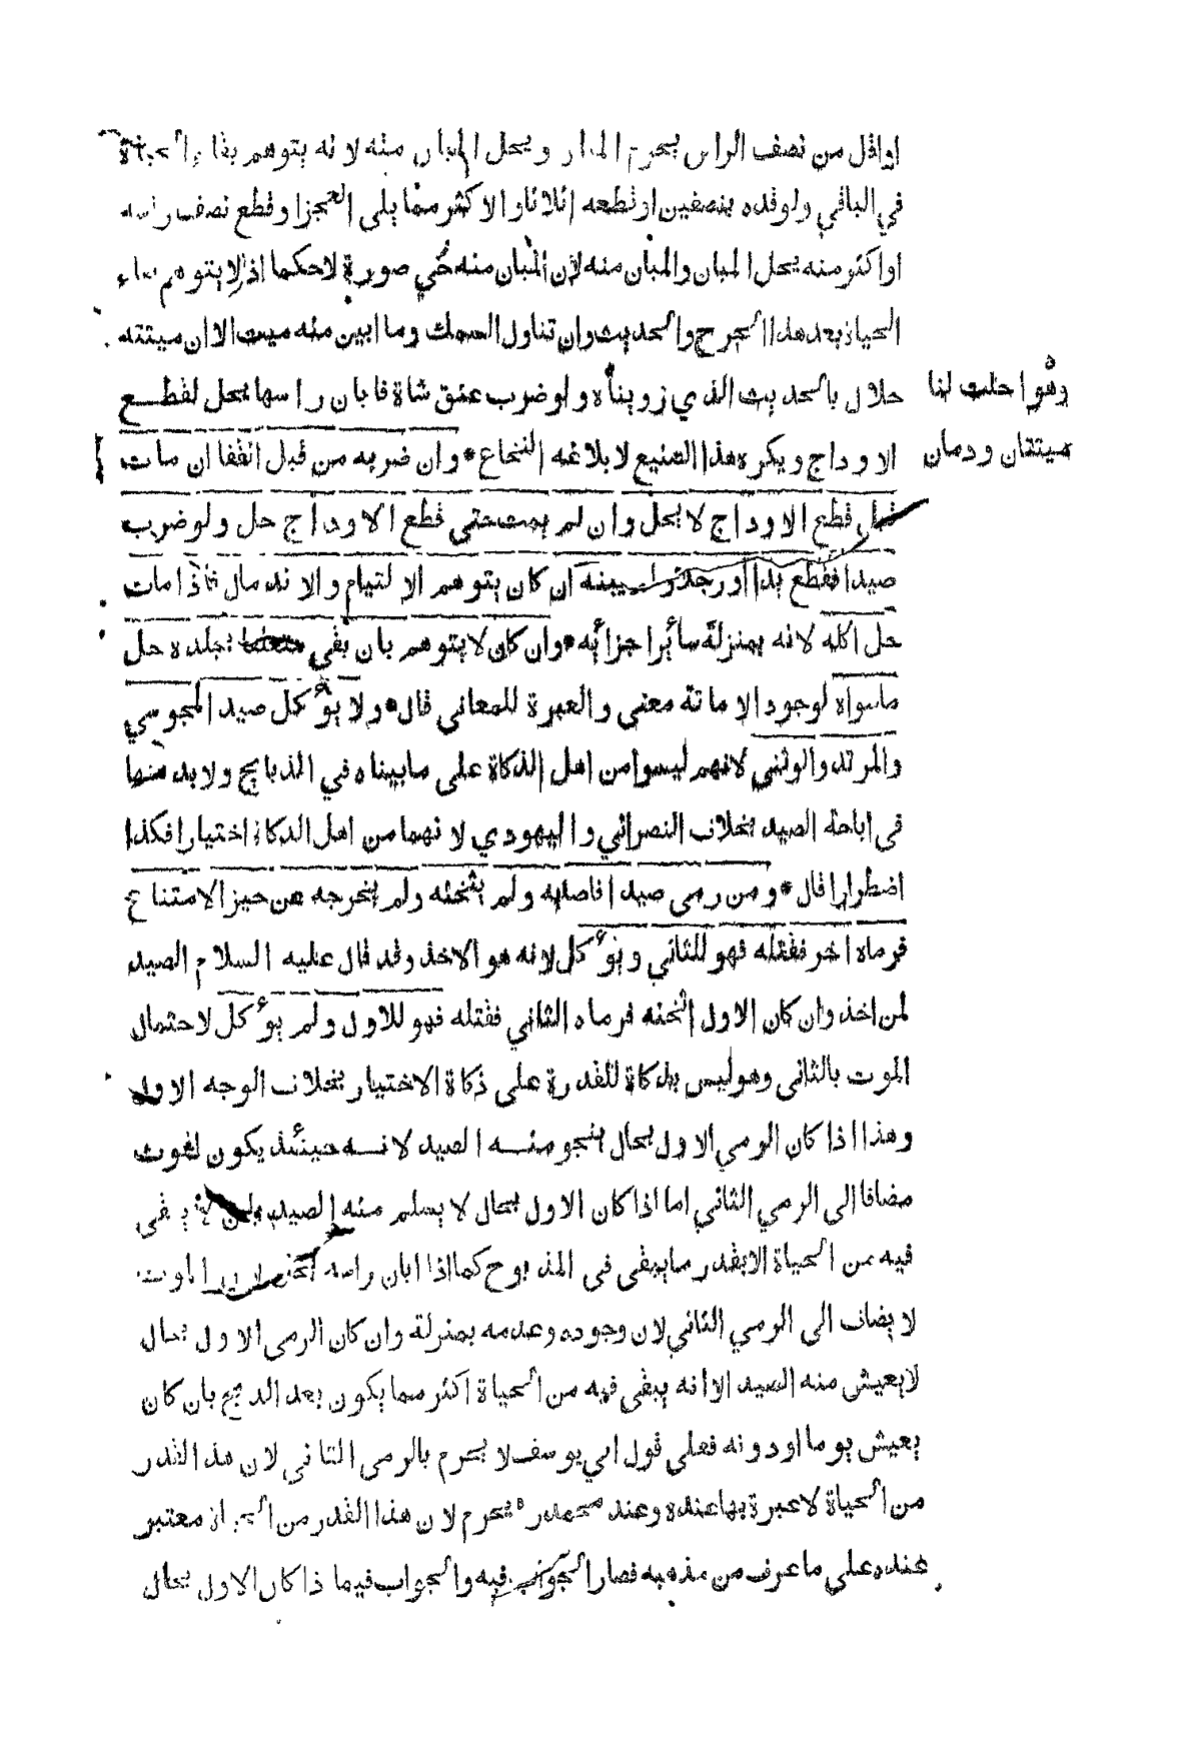 او اقل من نصف الراس يحرم المبان ويحل المبان منه لانه يتوهم بقاء الحياة
في الباقي ولو قده بنصفين او قطعه اثلاثا والاكثر مما يلى العجز او قطع نصف راسه
او اكثر منه يحل المبان والمبان منه لان المبان منه حي صورة لا حكما اذ لا يتوهم بقاء
الحياة بعد هذا الجرح والحديث وان تناول السمك وما ابين منه ميت الا ان ميتته
حلال بالحديث الذي رويناه ولو ضرب عنق شاة فابان راسها يحل لقطع
وهو احلت لنا
ميتتان ودمان
الاوداج ويكره هذا الصنيع لابلاغه النخاع * وان ضربه من قبل القفا ان مات
قبل قطع الاوداج لا يحل وان لم يمت حتى قطع الاوداج حل ولو ضرب
صيدا فقطع يدا او رجلا ولم يبنه ان كان يتوهم الالتيام والاندمال فاذا مات
حل اكله لانه بمنزلة سائر اجزائه * وان كان لا يتوهم بان بقي متعلقا بجلده حل
ما سواه لوجود الاماتة معنى والعبرة للمعاني قال * ولا يؤكل صيد المجوسي
والمرتد والوثني لانهم ليسوا من اهل الذكاة على ما بيناه في الذبايح ولا بد منها
في اباحة الصيد بخلاف النصراني واليهودي لانهما من اهل الذكاة اختيارا فكذا
اضطرارا قال * ومن رمى صيدا فاصابه ولم يثخنه ولم يخرجه عن حيز الامتناع
فرماه اخر فقتله فهو للثاني ويؤكل لانه هو الاخذ وقد قال عليه السلام الصيد
لمن اخذ وان كان الاول اثخنه فرماه الثاني فقتله فهو للاول ولم يؤكل لاحتمال
الموت بالثاني وهو ليس بذكاة للقدرة على ذكاة الاختيار بخلاف الوجه الاول
وهذا اذا كان الرمي الاول بحال ينجو منه الصيد لانه حينئذ يكون لموت
مضافا الى الرمي الثاني اما اذا كان الاول بحال لا يسلم منه الصيد بان لا يبقى
فيه من الحياة الا بقدر ما يبقى في المذبوح كما اذا ابان راسه الموت
لا يضاف الى الرمي الثاني لان وجوده وعدمه بمنزلة وان كان الرمي الاول بحال
لا يعيش منه الصيد الا انه يبقى فيه من الحياة اكثر مما يكون بعد الذبح بان كان
يعيش يوما او دونه فعلى قول ابي يوسف لا يحرم بالرمي الثاني لان هذا القدر
من الحياة لا عبرة بها عنده وعند محمد رح يحرم لان هذا القدر من الحياة معتبر
عنده على ما عرف من مذهبه فصار الجواب فيه والجواب فيما اذا كان الاول بحال